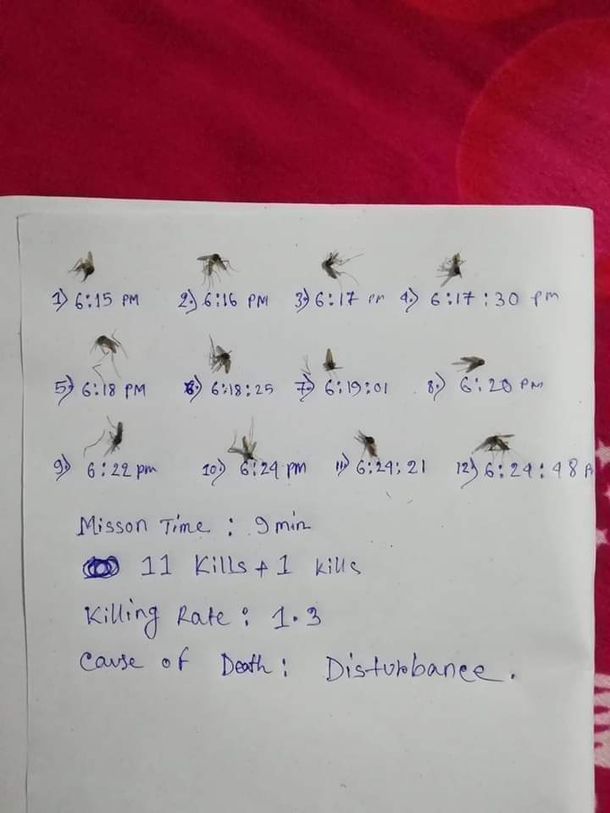 1) 6:15 PM 2.) 6:16 PM 3.) 6:17 Pm 4.) 6:17:30 Pm
5.) 6:18 PM 6.) 6:18:25 7.) 6:19:01 8.) 6:20 PM
9.) 6:22 pm 10.) 6:24 pm 11.) 6:24:21 12.) 6:24:48 P
Misson Time : 9 min
11 Kills + 1 kills
Killing Rate : 1.3
Cause of Death : Disturbance.